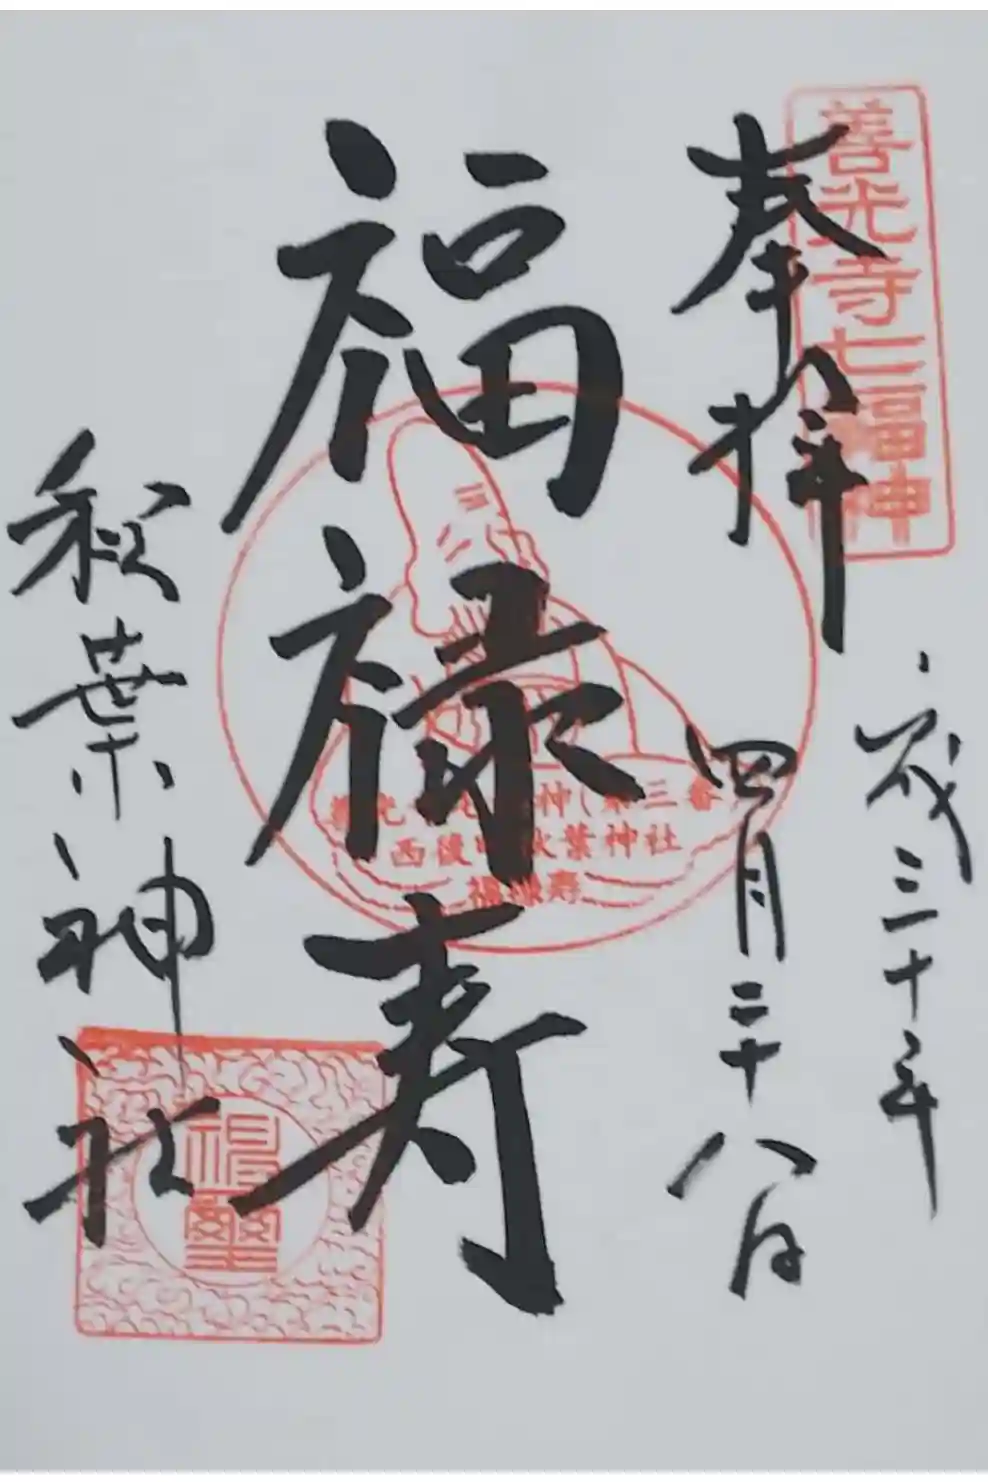 善光寺七福神
奉拝
歳三十年
四月二十八日
福禄寿
神(第三番)
西後町秋葉神社
福禄寿
秋葉神社